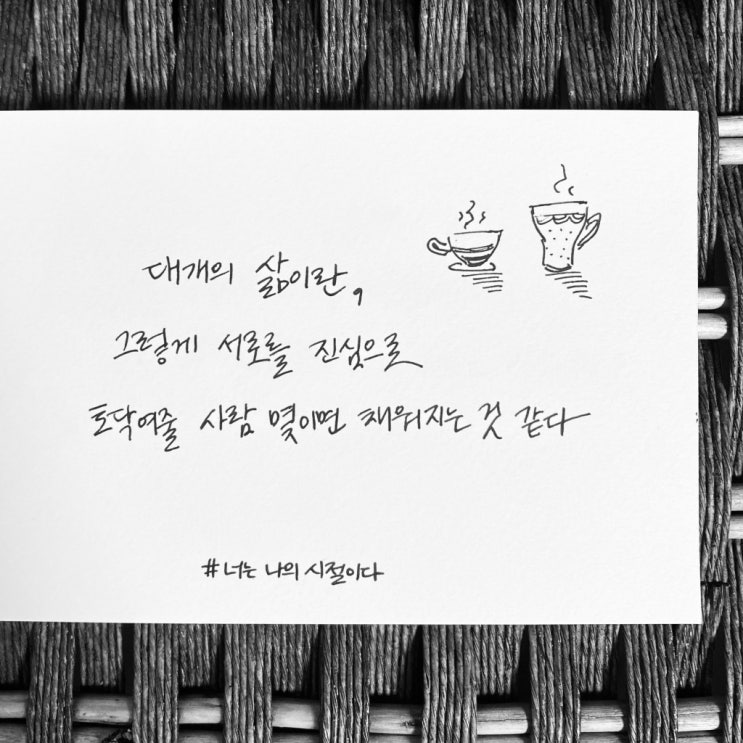 대개의 삶이란,
그렇게 서로를 진심으로
토닥여줄 사람 몇이면 채워지는 것 같다
#너는 나의 시절이다